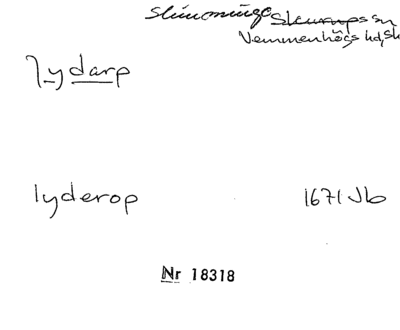 Slimminge Skurups sn
Vemmenhögs hd, Sk
Lydarp
lyderop 1671 Jb
Nr 18318